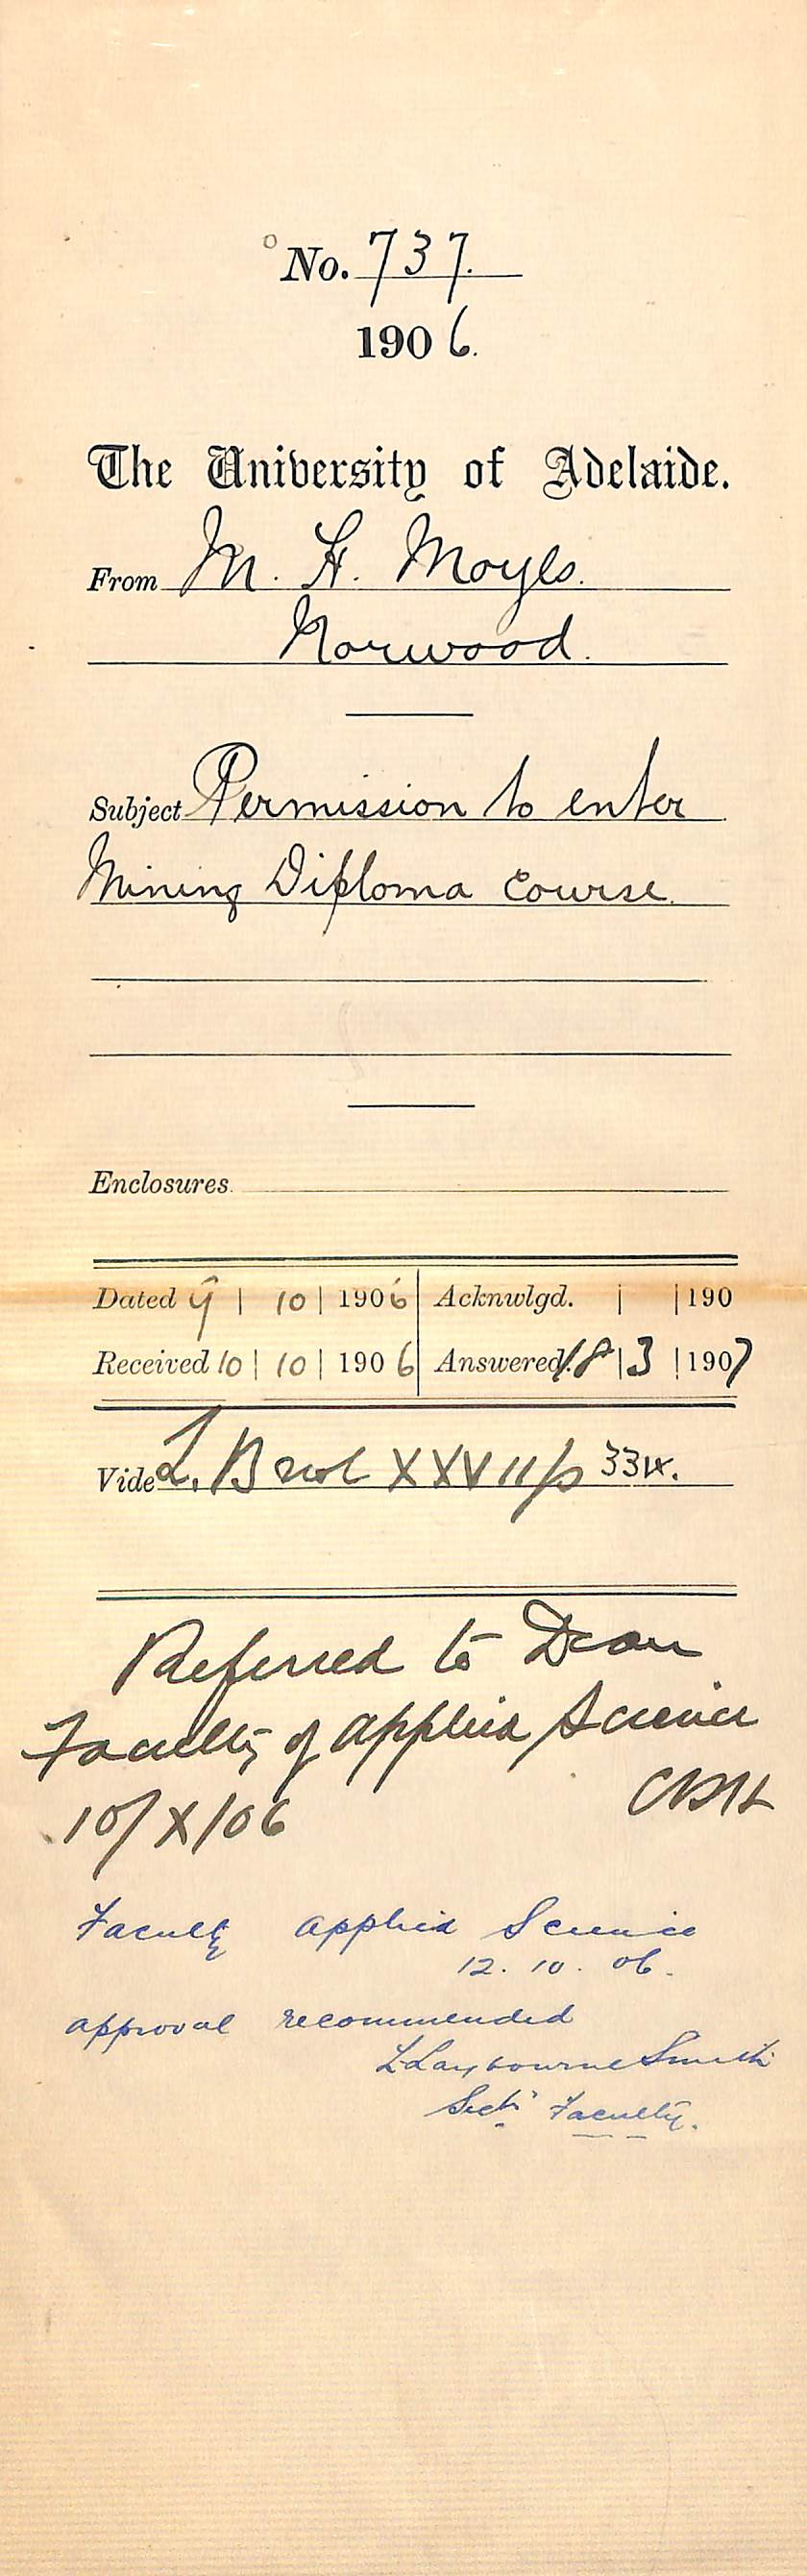 No. 737.
1906.
The University of Adelaide.
From M. H. Moyes.
Norwood.
Subject Permission to enter
Mining Diploma Course.
Enclosures
Dated 9 | 10 | 1906 Acknwlgd. | | 190
Received 10 | 10 | 1906 Answered 18 | 3 | 1907
Vide L. B vol XXVII p
Referred to Dean
Faculty of Applied Science
10/X/06
Faculty Applied Science
12. 10. 06.
approval recommended
L Laybourne Smith
Secty Faculty.